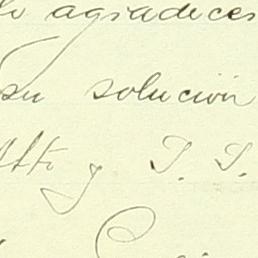 lo agradeces
su solución
Atto y S. S.